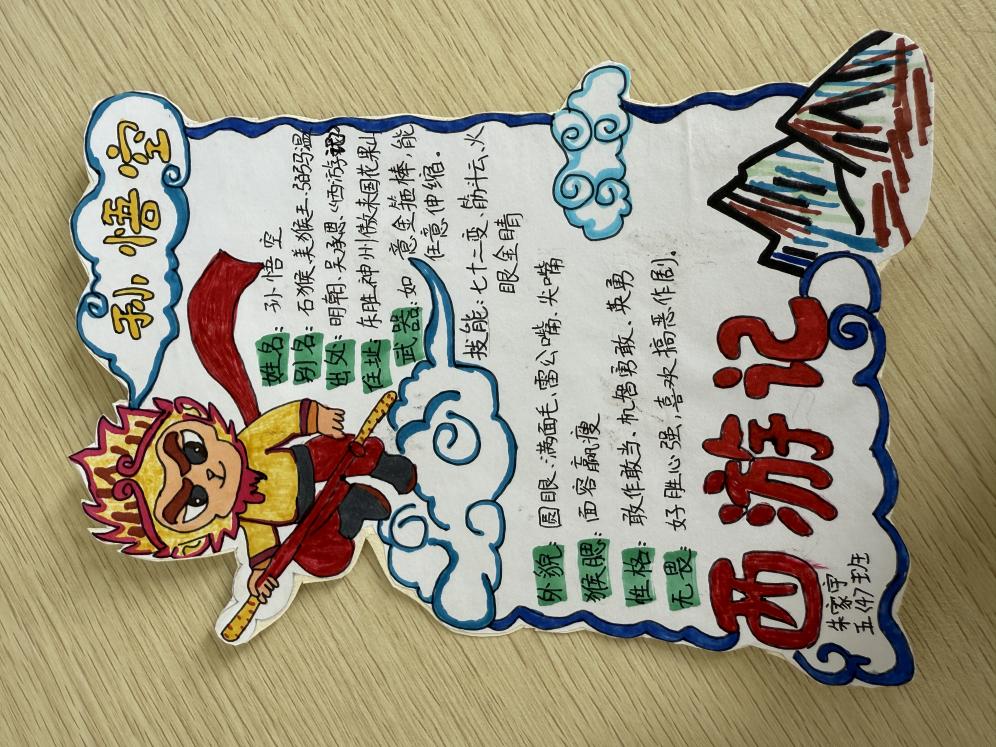 孙悟空
姓名：孙悟空
别名：石猴、美猴王、弼马温
出处：明朝吴承恩《西游记》
住址：东胜神州傲来国花果山
武器：如意金箍棒，能
任意伸缩。
技能：七十二变、筋斗云、火
眼金睛
外貌：圆眼、满面毛、雷公嘴、尖嘴
猴腮：面容羸瘦
性格：敢作敢当、机智勇敢、英勇
无畏：好胜心强，喜欢搞恶作剧。
西游记
朱家宇
五〈4〉班